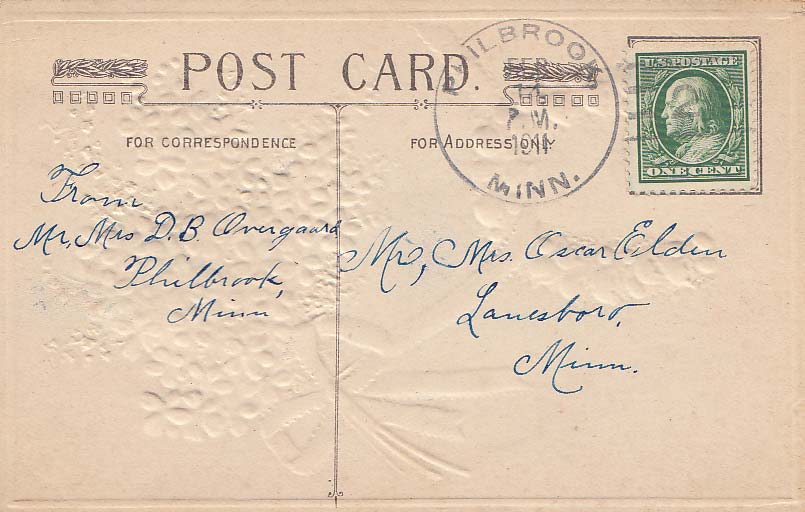 POST CARD.
PHILBROOK
FEB
11
P.M.
1911
MINN.
U.S. POSTAGE
ONE CENT
FOR CORRESPONDENCE
FOR ADDRESS ONLY
From
Mr, Mrs D. B. Overgaard
Philbrook,
Minn
Mr, Mrs. Oscar Elden
Lanesboro,
Minn.